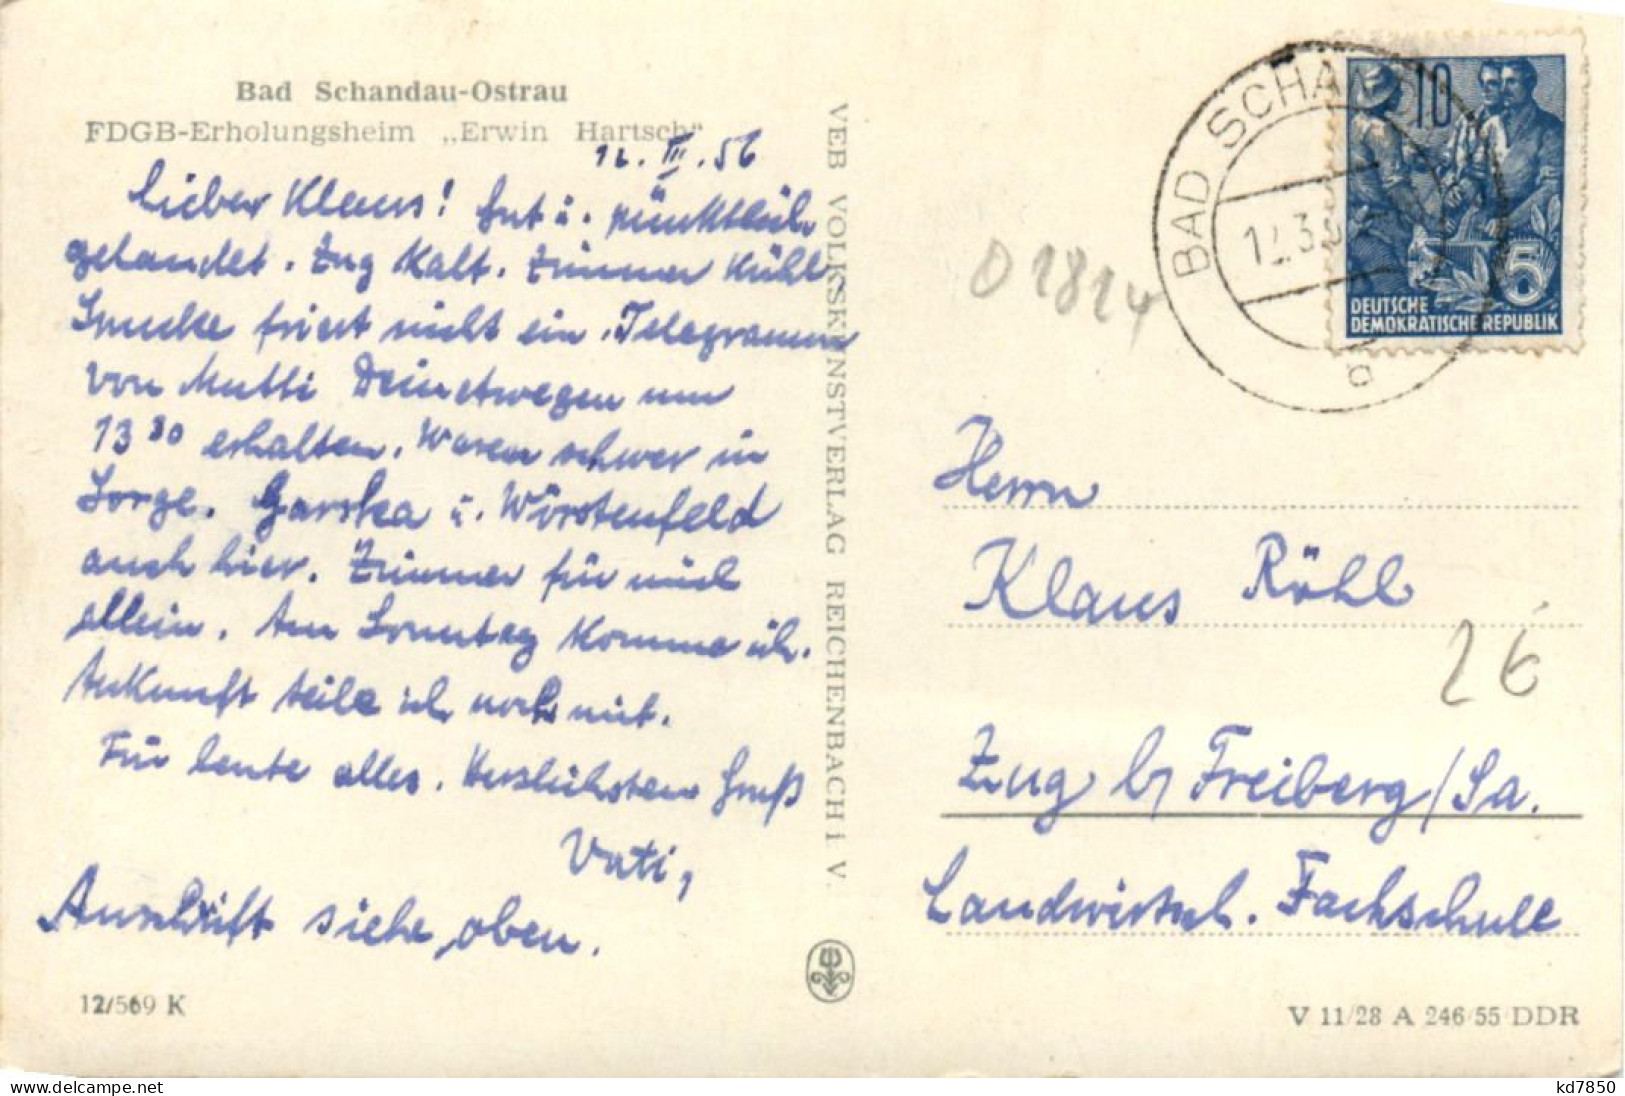 Bad Schandau-Ostrau
FDGB-Erholungsheim „Erwin Hartsch"
12. III. 56
Lieber Klaus! Gut u. pünktlich
gelandet. Zug kalt. Zimmer kühl
friert nicht ein. Telegramm
von Mutti Deinetwegen um
13 30 erhalten. Waren schwer in
Sorge. Garska u. Wörstenfeld
auch hier. Zimmer für mich
allein. Am Sonntag komme ich.
Ankunft teile ich noch mit.
Für heute alles. Herzlichsten Gruß
Vati,
Anschrift siehe oben.
12/569 K
VEB VOLKSKUNSTVERLAG REICHENBACH i. V.
BAD SCHANDAU
12.3.
b
10
5
DEUTSCHE
DEMOKRATISCHE REPUBLIK
01814
Herrn
Klaus Röhl
26
Zug b/ Freiberg/Sa.
Landwirtsch. Fachschule
V 11/28 A 246/55 DDR
kd7850